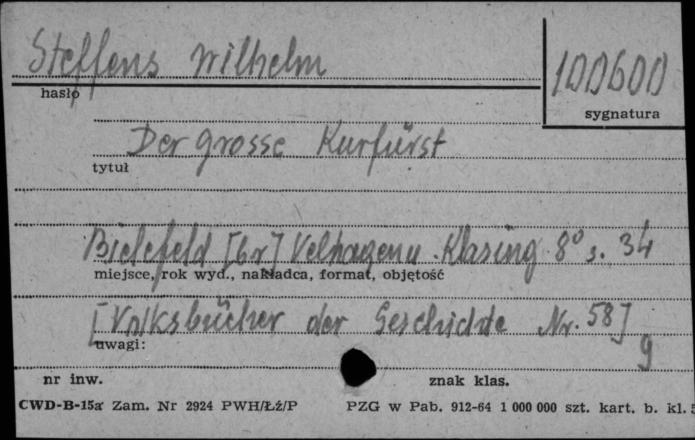 Steffens Wilhelm
100600
hasło
sygnatura
Der grosse Kurfürst
tytuł
Bielefeld [b.r] Velhagen u. Klasing 8° s. 34
miejsce, rok wyd., nakładca, format, objętość
[Volksbücher der Geschichte Nr. 58]
uwagi:
g
nr inw.
znak klas.
CWD-B-15a Zam. Nr 2924 PWH/Łź/P
PZG w Pab. 912-64 1 000 000 szt. kart. b. kl. 5